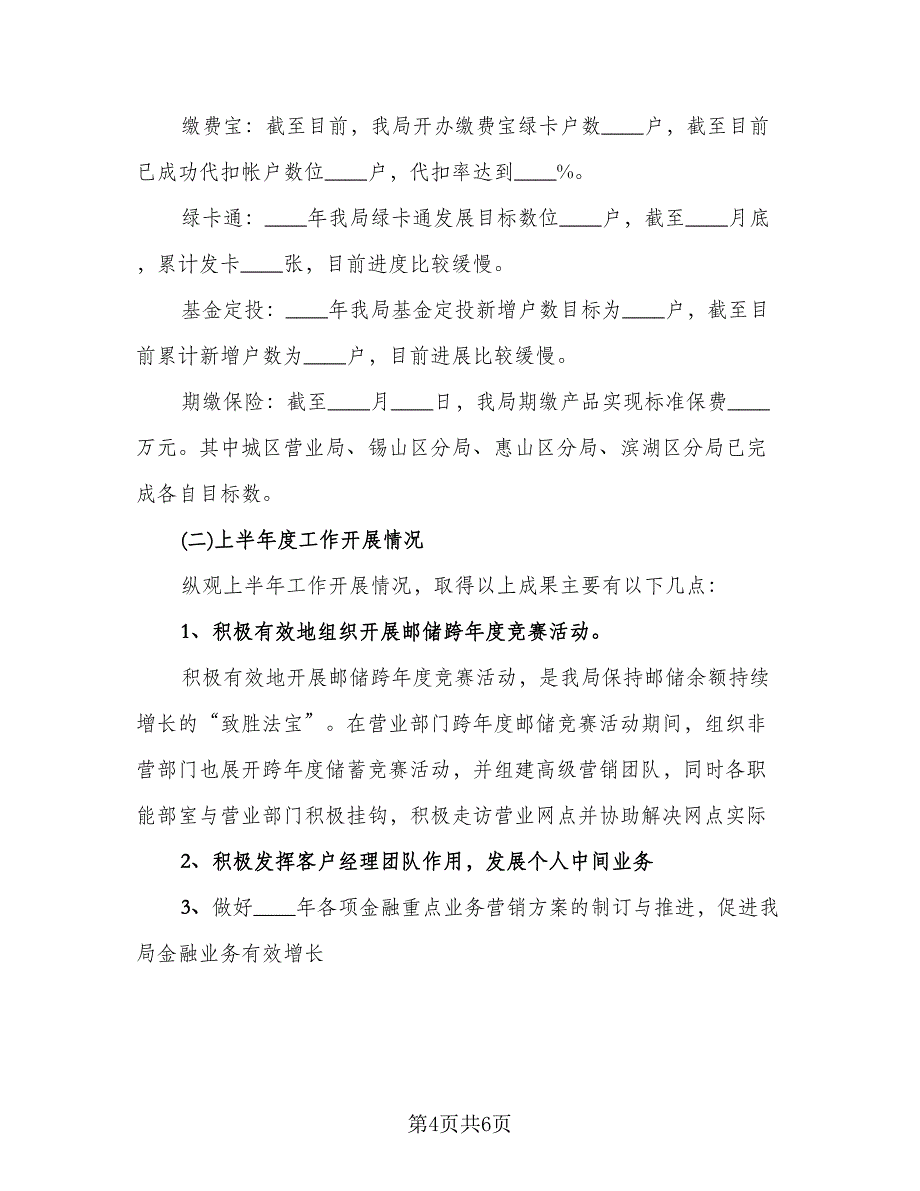 缴费宝：截至目前，我局开办缴费宝绿卡户数____户，截至目前
已成功代扣帐户数位____户，代扣率达到____%。
绿卡通：____年我局绿卡通发展目标数位____户，截至____月底
，累计发卡____张，目前进度比较缓慢。
基金定投：____年我局基金定投新增户数目标为____户，截至目
前累计新增户数为____户，目前进展比较缓慢。
期缴保险：截至____月____日，我局期缴产品实现标准保费____
万元。其中城区营业局、锡山区分局、惠山区分局、滨湖区分局已完
成各自目标数。
(二)上半年度工作开展情况
纵观上半年工作开展情况，取得以上成果主要有以下几点：
1、积极有效地组织开展邮储跨年度竞赛活动。
积极有效地开展邮储跨年度竞赛活动，是我局保持邮储余额持续
增长的“致胜法宝”。在营业部门跨年度邮储竞赛活动期间，组织非
营部门也展开跨年度储蓄竞赛活动，并组建高级营销团队，同时各职
能部室与营业部门积极挂钩，积极走访营业网点并协助解决网点实际
2、积极发挥客户经理团队作用，发展个人中间业务
3、做好____年各项金融重点业务营销方案的制订与推进，促进我
局金融业务有效增长
第4页共6页